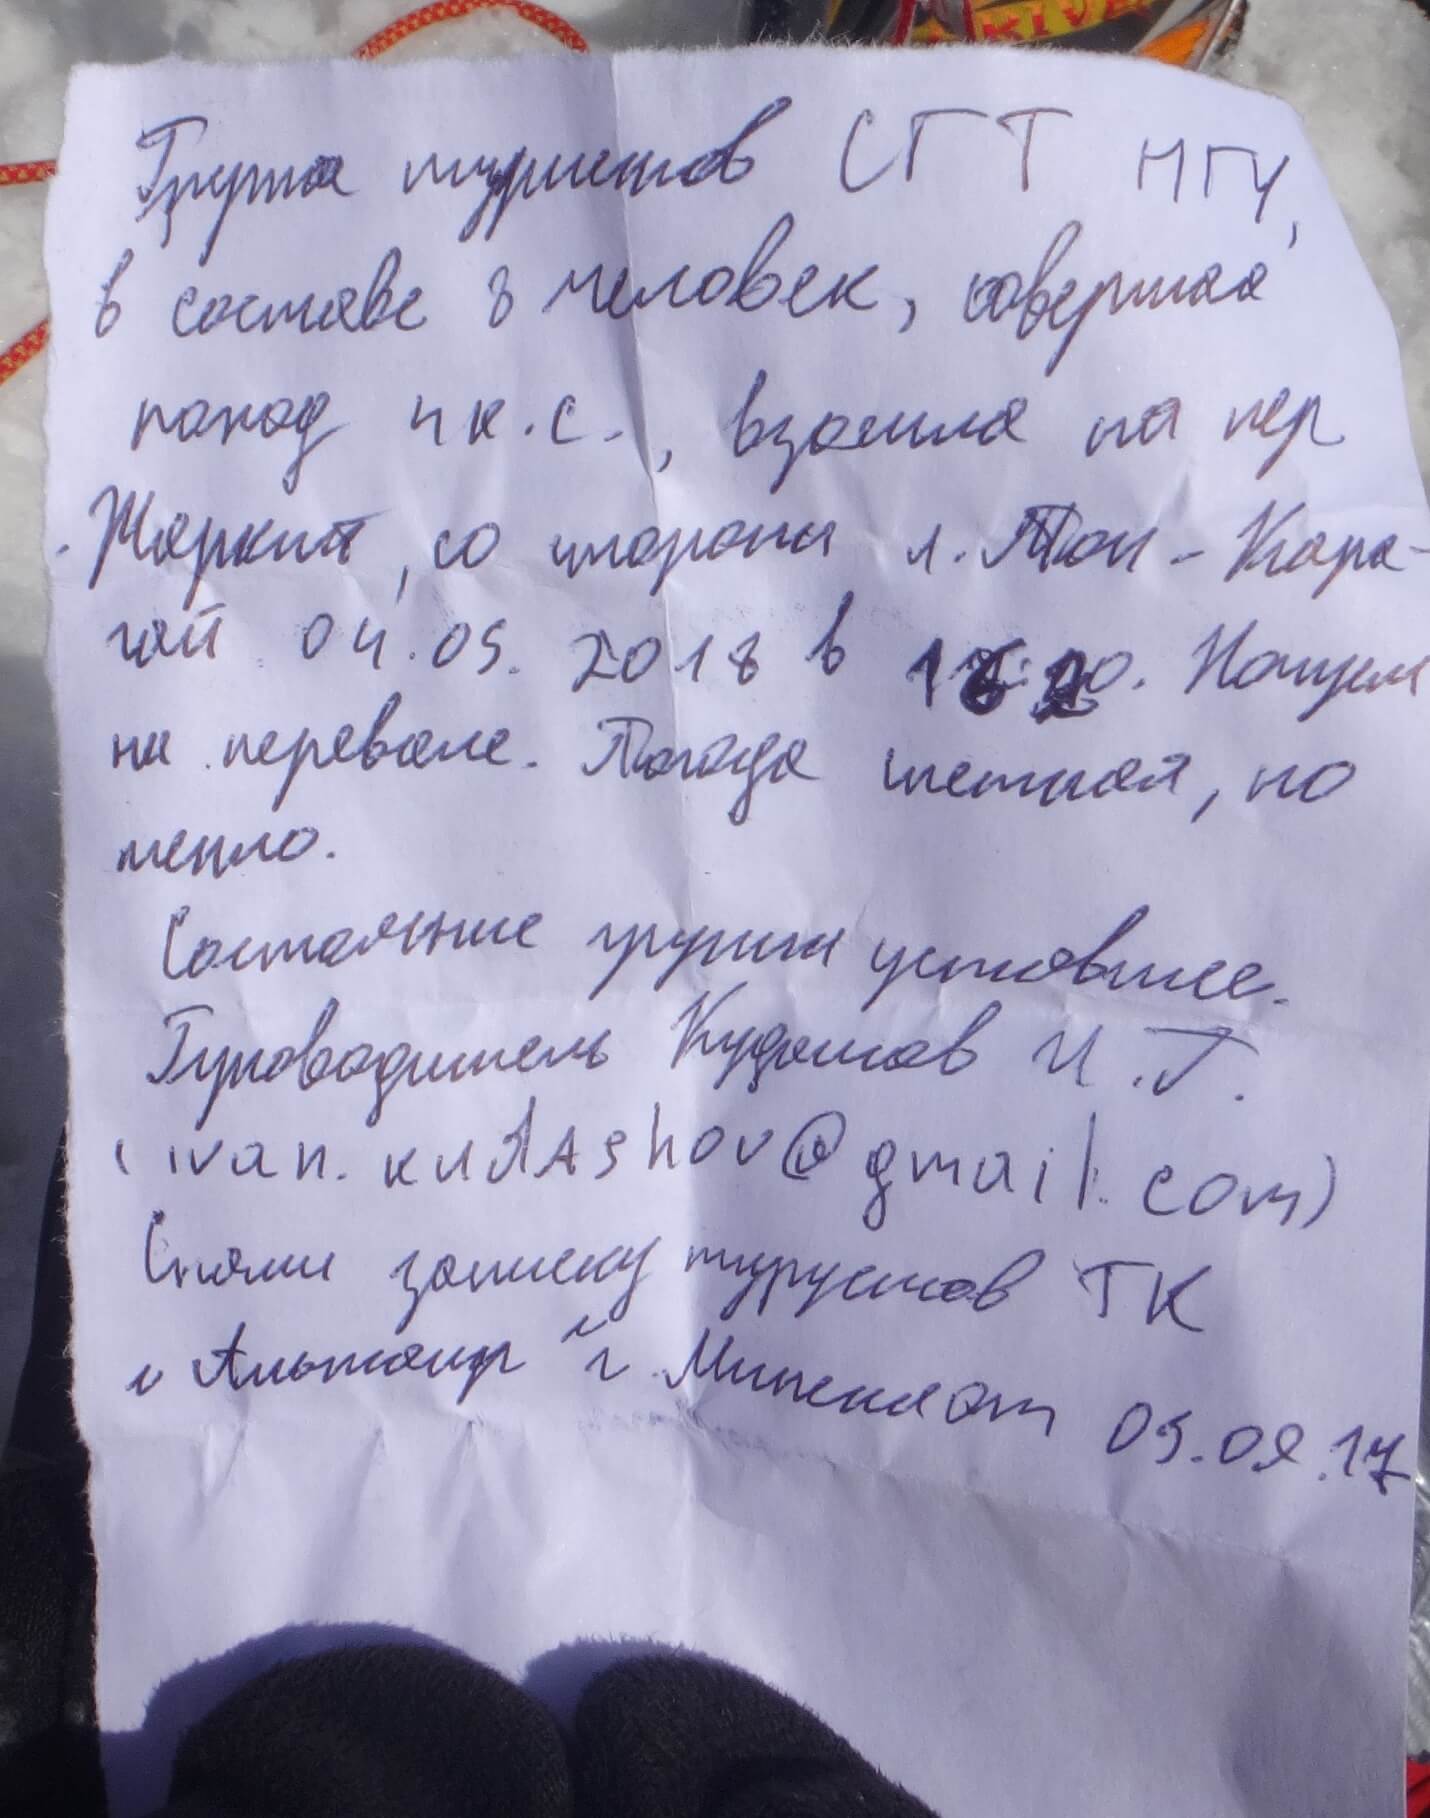 Группа туристов СГТ НГУ,
в составе 8 человек, совершая
поход 4 к.с., взошла на пер
. Жаркит, со стороны л. Топ-Кара-
гай 04.05.2018 в Ночуем
на перевале. Погода снежная, но
тепло.
Состояние группы уставшее.
Руководитель Кудашов И.Г.
(ivan.kudAshov@gmail.com)
Сняли записку турустов ТК
"Альтаир" г. 09.17